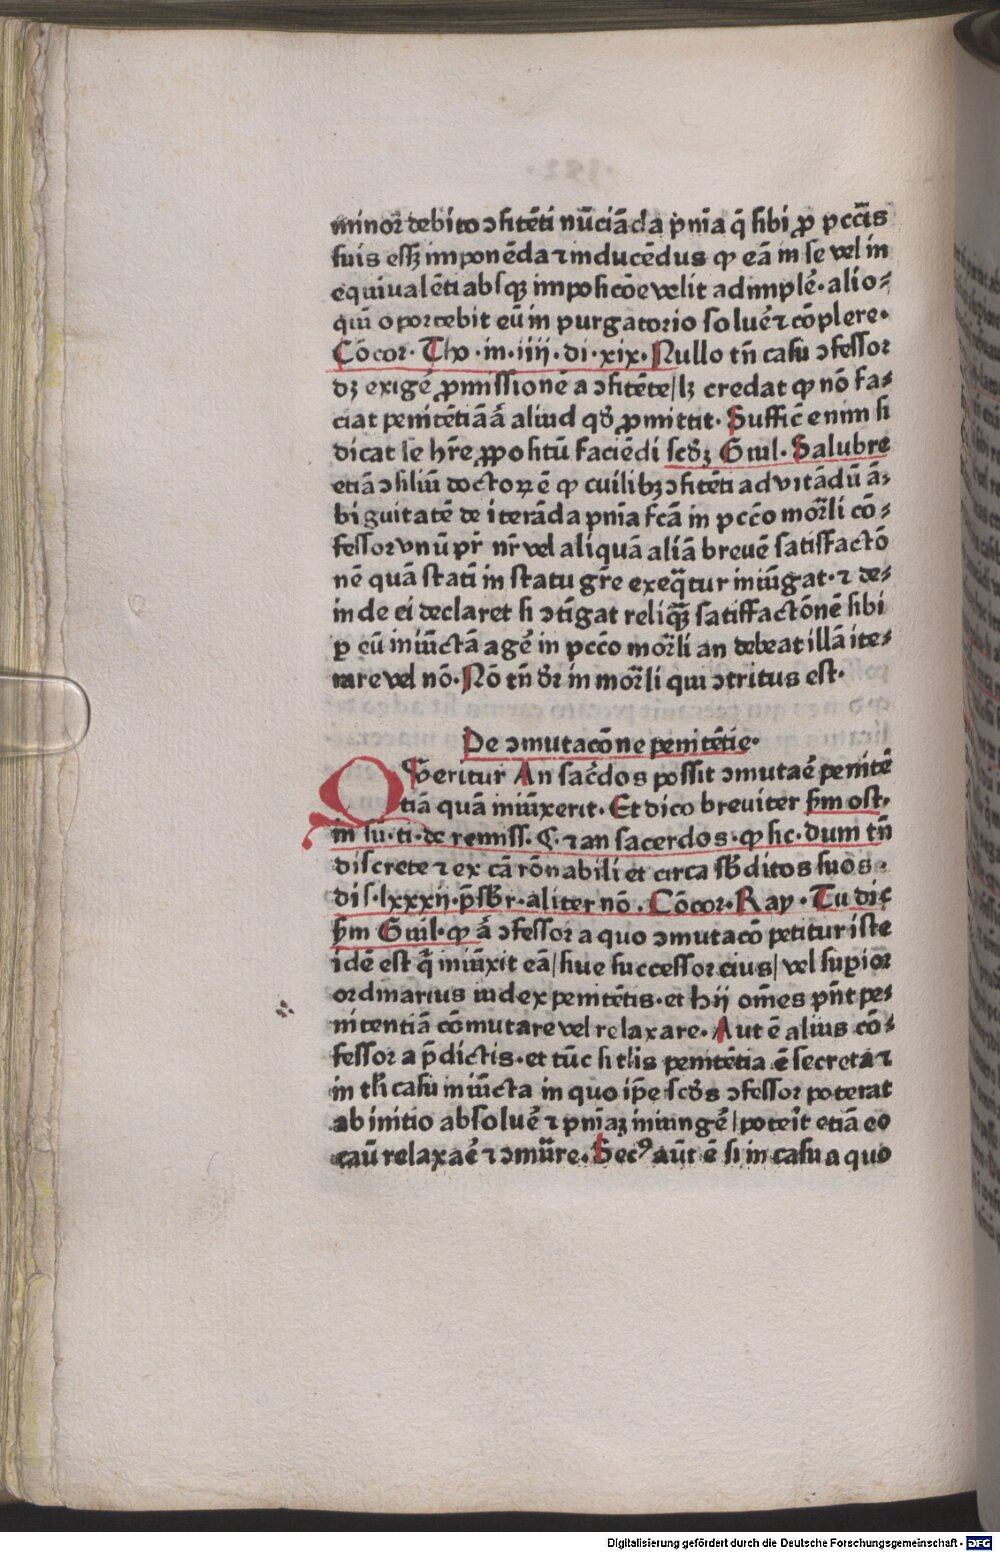 minor debito ↄfitēti nūciāda pn̄ia q̄ sibi ꝓ pcc̄is
suis eēt imponēda ⁊ inducēdus ꝙ eā in se vel in
equiualēti absqꝫ imposicōe velit adimplē· alio⸗
quī oportebit eū in purgatorio soluē ⁊ cōplere·
Cōcor· Tho·in·iiij·di·xix· Nullo tn̄ casu ↄfessor
dꝫ exigē ꝓmissionē a ↄfitēte/lꝫ credat ꝙ nō fa⸗
ciat penitētiā ā aliud qđ ꝓmittit· Suffic̄ enim si
dicat se hr̄e ꝓpositū faciēdi scđꝫ Guil· Salubre
etiā ↄsiliū doctoꝝ ē ꝙ cuilibꝫ ↄfitēti ad vitādū ā⸗
biguitatē de iterāda pn̄ia fc̄a in pcc̄o mor̄li cō⸗
fessor vnū pr̄ nr̄ vel aliquā aliā breuē satisfactō
nē quā stati in statu gr̄e exeq̄tur iniūgat· ⁊ de⸗
inde ei declaret si ↄtīgat reliq̄ꝫ satisfactōnē sibi
ꝑ eū iniūctā agē in pcc̄o mor̄li an debeat illā ite⸗
rare vel nō· Nō tn̄ đr in mor̄li qui ↄtritus est·
De ↄmutacōne penitētie·
Qveritur An sac̄dos possit ↄmutaē penitē
tiā quā iniūxerit· Et dico breuiter s̄m ost·
in sū·ti·de remiss· §· ⁊ an sacerdos·ꝙ sic· dum tn̄
discrete ⁊ ex cā rōnabili et circa sb̄ditos suos·
dis·lxxxij·p̄sb̄r·aliter nō· Cōcor· Ray· Tu dic
s̄m Guil·ꝙ ā ↄfessor a quo ↄmutacō petitur iste
idē est q̄ iniūxit eā/siue successor eius/vel supior
ordinarius iudex penitētis·et hij om̄es pn̄t pe⸗
nitentiā cōmutare vel relaxare· Aut ē alius cō⸗
fessor a p̄dictis·et tūc si tl̄is penitētia ē secreta ⁊
in tl̄i casu iniūcta in quo ip̄e scđs ↄfessor poterat
ab initio absoluē ⁊ pn̄iaꝫ iniungē/poterit etiā eo
caū relaxaē ⁊ ↄmūre· Secꝰ aūt ē si in casu a quo
Digitalisierung gefördert durch die Deutsche Forschungsgemeinschaft - DFG